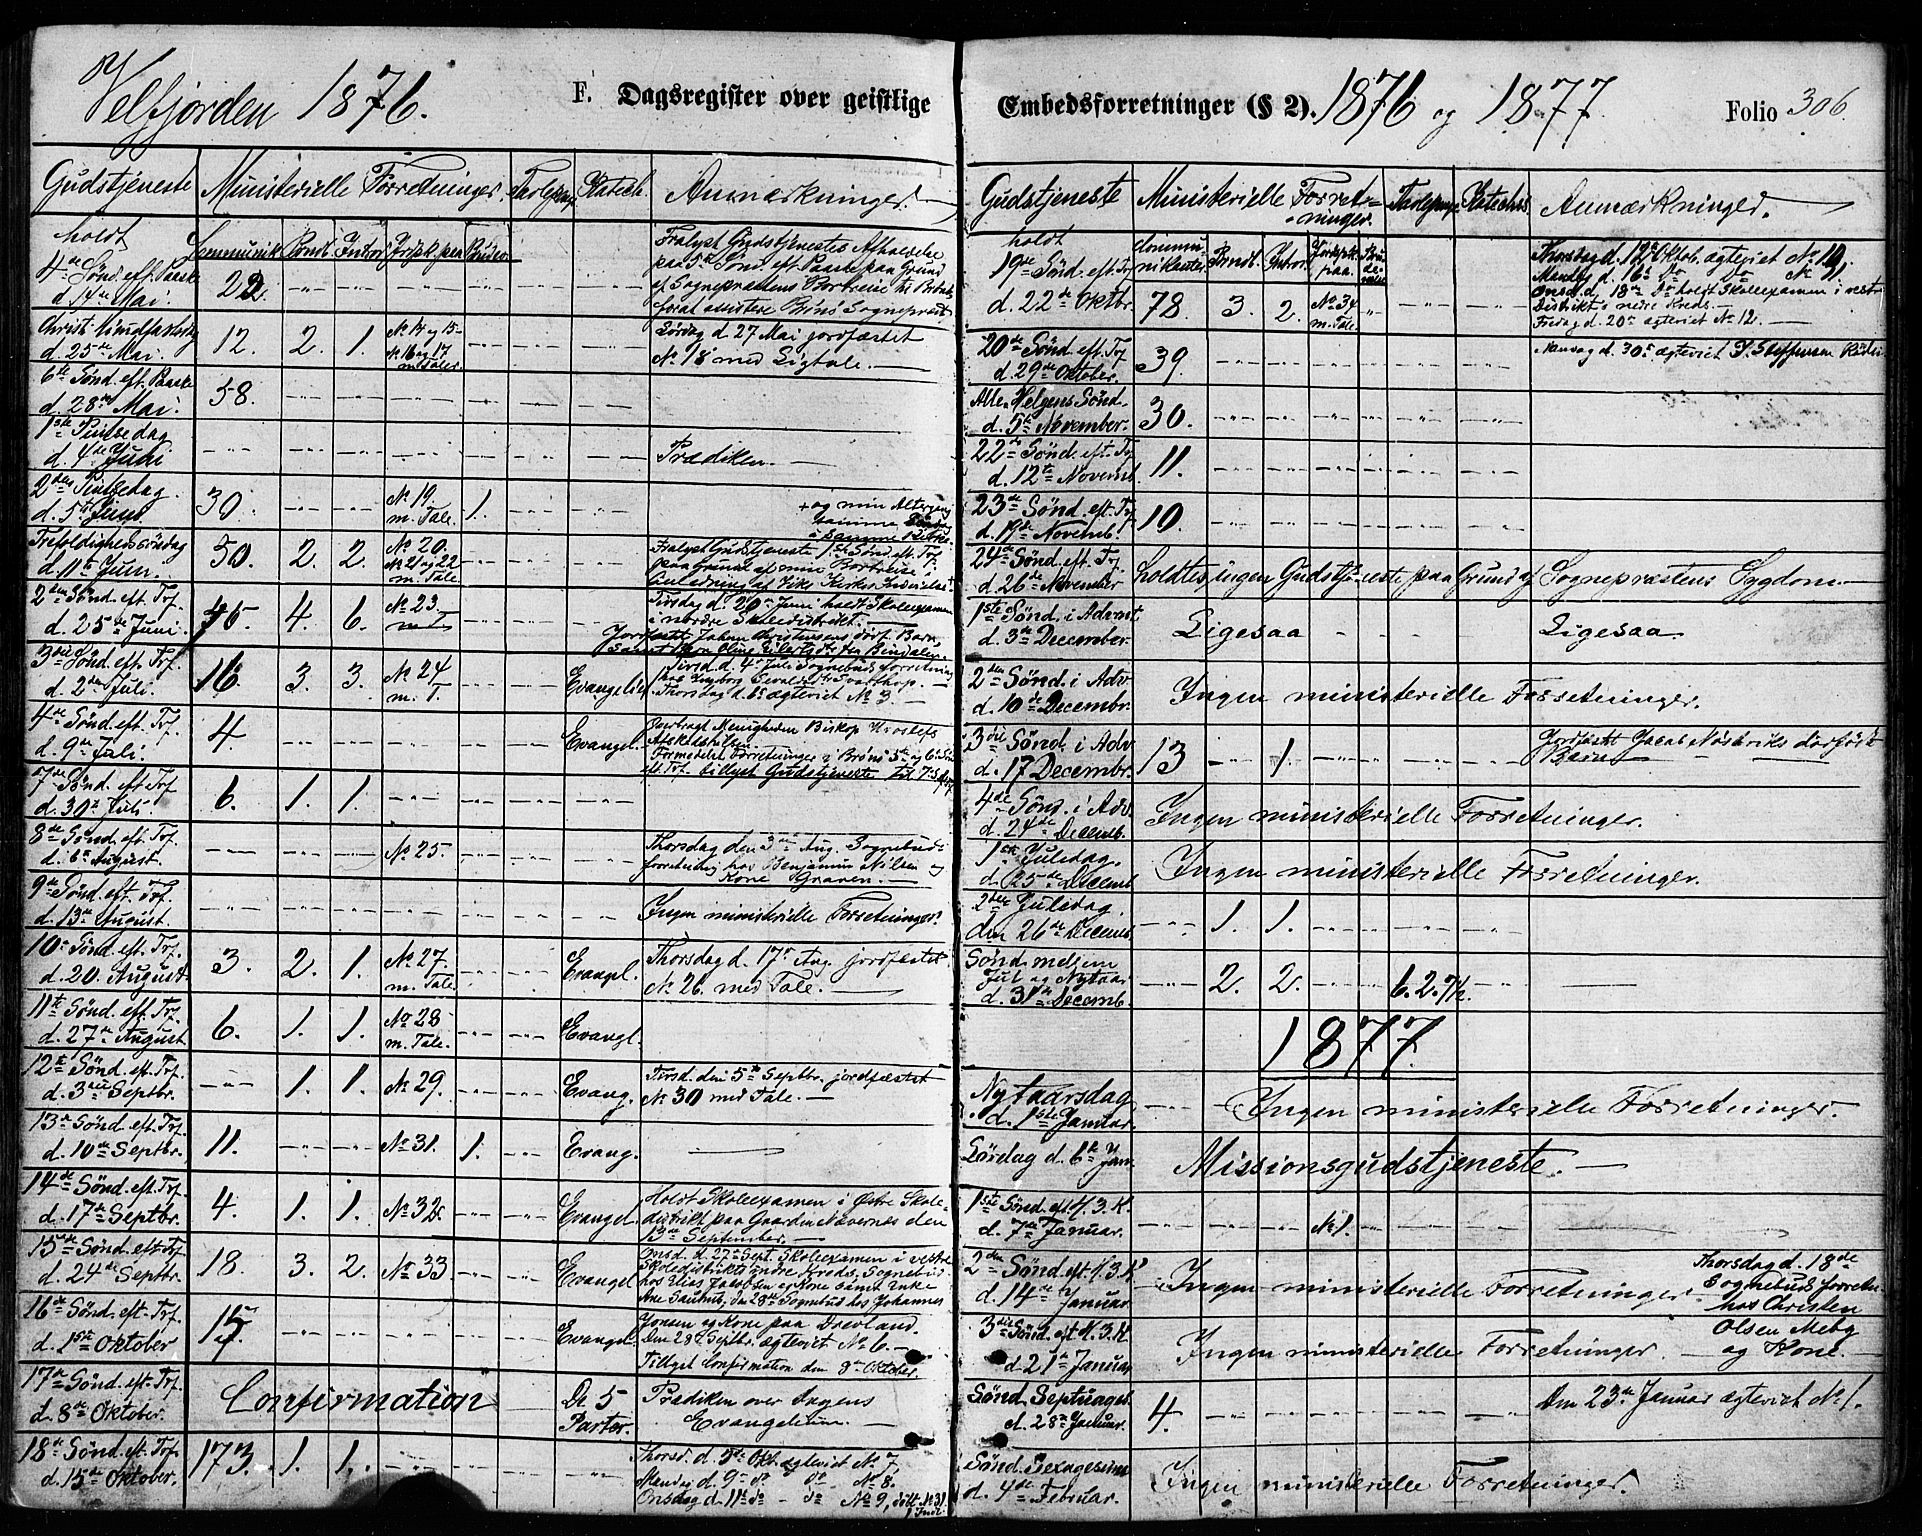 Velfjorden 1876.
F. Dagsregister over geistlige
Gudstjeneste Ministerielle Forretninger. Katech. Anmærkninger.
holdt
4de Sønd. eft. Paaske
d. 14de Mai.
22.
Fralyst Gudstjenestes Afholdelse
paa 5te Sønd. eft. Paaske paa Grund
af Sognepræstens Bortreise til Brønø
Christi Himmelfartsdag
d. 25de Mai.
12. 2. 1. No 14 og 15
No 16 og 17
m. Taler.
Lørdag d. 27 Mai jordfæstet
No 18 med Ligtale.
6te Sønd. eft. Paaske
d. 28de Mai.
58.
1ste Pintsedag
d. 4de Juni
Prædiken.
2den Pintsedag.
d. 5te Juni.
30. No 19.
m. Tale. 1.
+ og min Altergang
samme Søndag
i samme Kirke.
Trefoldighedssøndag
d. 11te Juni.
50. 2. 2. No 20.
No 21 og 22
m. Tale
Fralyst Gudstjeneste 1ste Sønd. eft. Trf.
paa Grund af min Bortreise i
Anledning af Kirkes Indvielse +
2den Sønd. eft. Trf.
d. 25de Juni.
46. 4. 6. No 23.
m. T.
Tirsdag d. 20de Juni holdt Skoleexamen
i nordre Skoledistrikt.
Jordfæstet Johan Christensens dørf. Barn
3die Sønd. eft. Trf.
d. 2den Juli.
16. 3. 3. No 24
m. T.
Evangeliet
Tirsd. d. 4de Juli Sognebudsforretning
Thorsdag d. 6te ægteviet No 3.
4de Sønd. eft. Trf.
d. 9de Juli.
4. Evangel.
Overbragt Menigheden Biskop Hvoslefs
Afskedshilsen.
Formedelst Forretninger i Brønø 5te og 6te Sønd.
eft. Trf. tillyst Gudstjeneste til 7. S. eft. Trf.
7de Sønd. eft. Trf
d. 30te Juli.
6. 1. 1.
8de Sønd. eft. Trf.
d. 6te August.
No 25.
Thorsdag den 3die Aug. Sognebuds
forretning hos Benjamin Nilsen og
Kone Graven.
9de Sønd. eft. Trf.
d. 13de August.
Ingen ministerielle Forretninger.
10de Sønd. eft. Trf.
d. 20. August.
3. 2. 1. No 27.
m. Tale.
Evangel.
Thorsdag d. 17de Aug. jordfæstet
No 26. med Tale.
11te Sønd. eft. Trf.
d. 27de August.
6. 1. 1. No 28
m. Tale.
Evangl.
12te Sønd. eft. Trf.
d. 3die Septbr.
1. 1. No 29.
Evang.
Tirsd. den 5te Septbr. jordfæstet
No 30 med Tale.
13de Sønd. eft. Trf.
d. 10de Septbr.
11. No 31. 1. Evang.
14de Sønd. eft. Trf.
d. 17de Septbr.
4. 1. 1. No 32. Evangel.
Holdt Skoleexamen i Østre Skole-
distrikt paa Gaarden Nævernes den
13de September.
15de Sønd. eft. Trf.
d. 24de Septbr.
18. 3. 2. No 33 Evangel
Onsd. d. 27de Sept. Skoleexamen i vestre
Skoledistrikts indre Kreds, Sognebud
hos Elias Jacobsen og Kone samt Enke
den 28de Sognebud hos Johannes
16de Sønd. eft. Trf.
d. 1ste Oktober
15. Evangel.
Jonsen og Kone paa Drevland.
Den 28de Septbr. ægteviet No 6.
Tillyst Confirmation den 8de Oktober.
17de Sønd. eft. Trf.
d. 8de Oktober.
Confirmation De 5
Parter.
Prædiken over Dagens
Evangelium.
18de Sønd. eft. Trf.
d. 15de Oktober.
173. 1. 1.
Thorsd. d. 5te Okt. ægteviet No 7.
Mandag d. 9de do do No 8.
Onsdag d. 11te do - do No 9, døbt No 31
Embedsforretninger (§ 2). 1876 og 1877. Folio 306
Gudstjeneste Ministerielle Forret-
ninger. Katechis. Anmærkninger.
holdt
19de Sønd. eft. Trf
d. 22de Oktbr.
78. 3. 2. No 34
m. Tale.
Thorsdag d. 12te Oktob. ægteviet No 10.
Mandag d. 16de Do Do No 11.
Onsd. d. 18de Do holdt Skoleexamen i vestre
Distrikts nedre Kreds.
Fredag d. 20de ægteviet No 12.
20de Sønd. eft. Trf
d. 29de Oktober.
39.
Mandag d. 30te ægteviet
Alle Helgens Sønd.
d. 5te November.
30.
22de Sønd. eft. Trf
d. 12te Novemb.
11.
23de Sønd. eft. Trf
d. 19de Novemb.
10.
24de Sønd. eft. Trf.
d. 26de November
holdtes ingen Gudstjeneste paa Grund af Sognepræstens Sygdom.
1ste Sønd. i Advent
d. 3die December.
Ligesaa - - - Ligesaa
2den Sønd. i Adv
d. 10de Decembr.
Ingen ministerielle Forretninger.
3die Sønd. i Adv
d. 17 Decembr.
13 1.
Jordfæstet Jacob Nøstviks dørfødt
Barn
4de Sønd. i Adv.
d. 24de Decemb.
Ingen ministerielle Forretninger.
1ste Juledag.
d. 25de Decemb
Ingen ministerielle Forretninger.
2den Juledag.
den 26de Decemb.
1. 1.
Sønd. mellem
Jul og Nytaar
d. 31te Decemb.
2. 2.
1877.
Nytaarsdag
d. 1ste Januar.
Ingen ministerielle Forretninger.
Lørdag d. 6te Jan.
Missionsgudstjeneste.
1ste Sønd. eft. H. 3. K.
d. 7de Januar.
No 1.
2den Sønd. eft. H. 3. K.
d. 14de Januar.
Ingen ministerielle Forretninger
Thorsdag d. 18de
Sognebudsforretn.
hos Christen
Olsen Mebg
og Kone.
3die Sønd. eft. H. 3. K.
d. 21de Januar
Ingen ministerielle Forretninger.
Sønd. Septuages.
d. 28de Januar.
4.
Den 23de Januar ægteviet No 1.
Sønd. Sexagesima
d. 4de Februar.
Ingen ministerielle Forretninger.